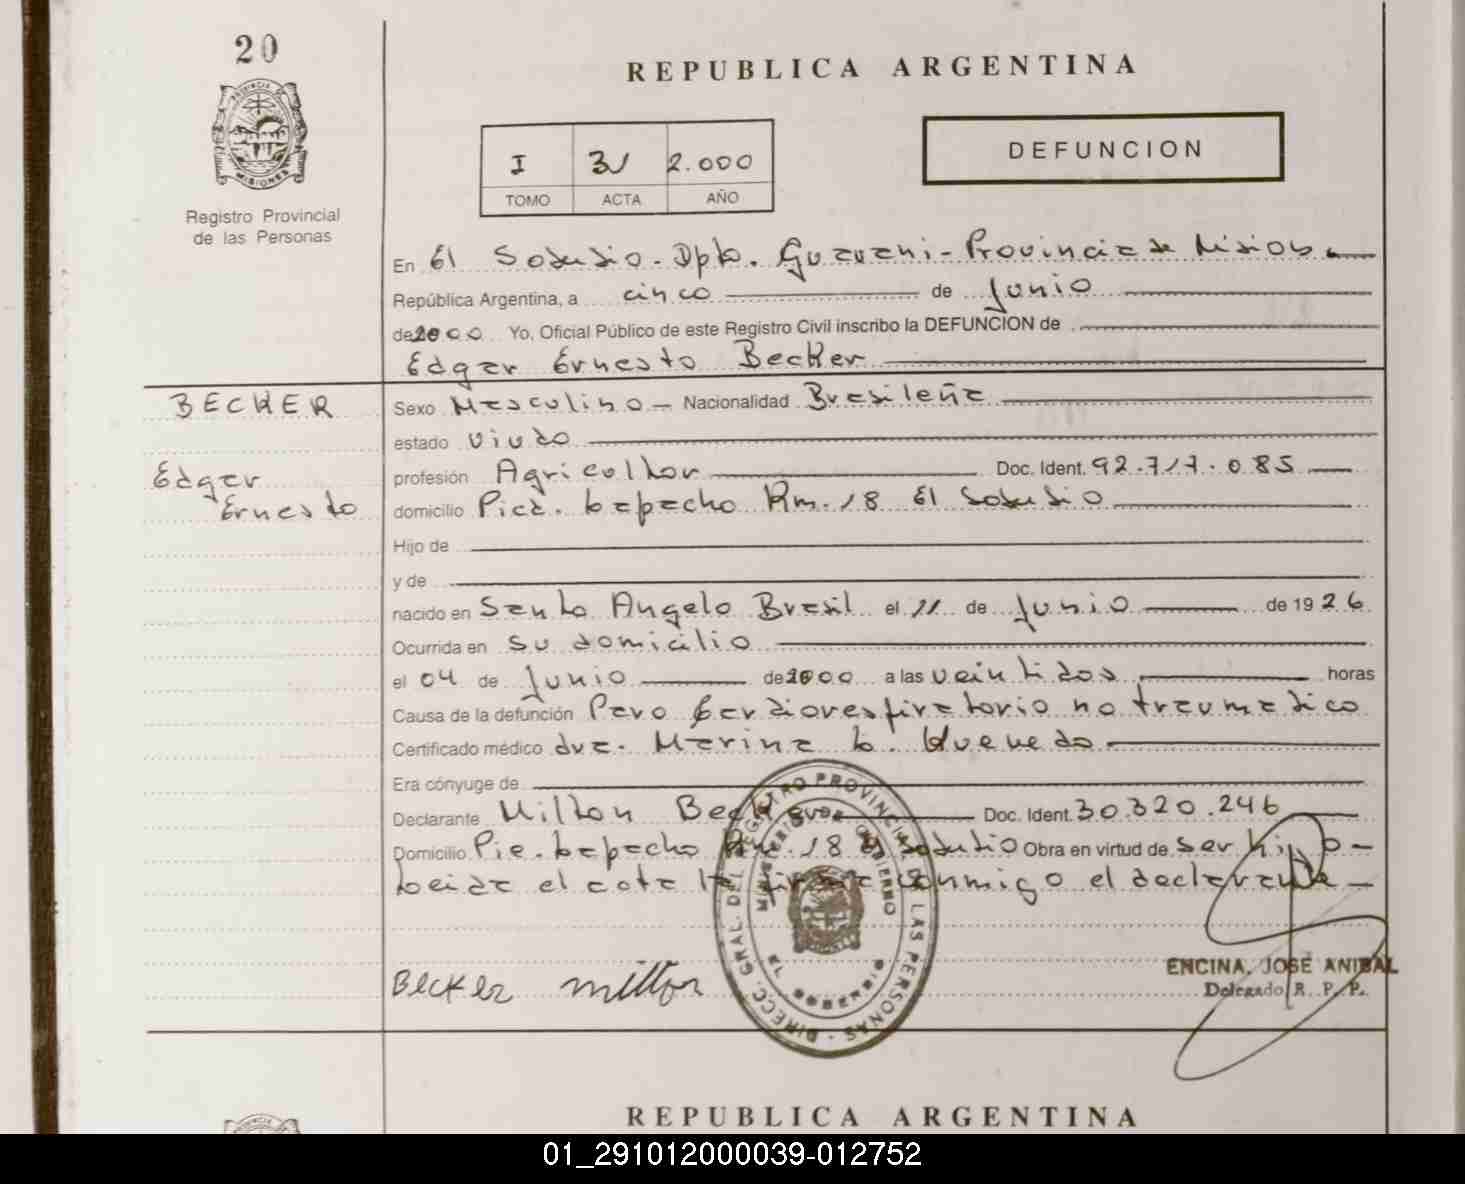 20
PROVINCIA DE
MISIONES
Registro Provincial
de las Personas
REPUBLICA ARGENTINA
I 31 2.000
TOMO ACTA AÑO
DEFUNCION
En El Soberbio - Dpto. Guarani - Provincia de Misiones
República Argentina, a cinco de Junio
de 2000 Yo, Oficial Público de este Registro Civil inscribo la DEFUNCION de
Edgar Ernesto Becker
BECKER
Edgar
Ernesto
Sexo Masculino - Nacionalidad Brasileña
estado viudo
profesión Agricultor Doc. Ident. 92.717.085
domicilio Pica. Km. 18 El Soberbio
Hijo de
y de
nacido en Santo Angelo Brasil el 11 de Junio de 1926
Ocurrida en su domicilio
el 04 de Junio de 2000 a las veintidos horas
Causa de la defunción Paro Cardiorespiratorio no traumatico
Certificado médico dra. Marina
Era cónyuge de
Declarante Milton Becker Doc. Ident. 30.320.246
Domicilio Pic. Km. 18 El Soberbio Obra en virtud de ser hijo -
Leida el acta la firma conmigo el declarante -
DIRECC. GRAL. DEL REGISTRO PROVINCIAL DE LAS PERSONAS
MINISTERIO DE GOBIERNO
EL SOBERBIO
Becker Milton
ENCINA, JOSE ANIBAL
Delegado R. P. P.
REPUBLICA ARGENTINA
01_291012000039-012752